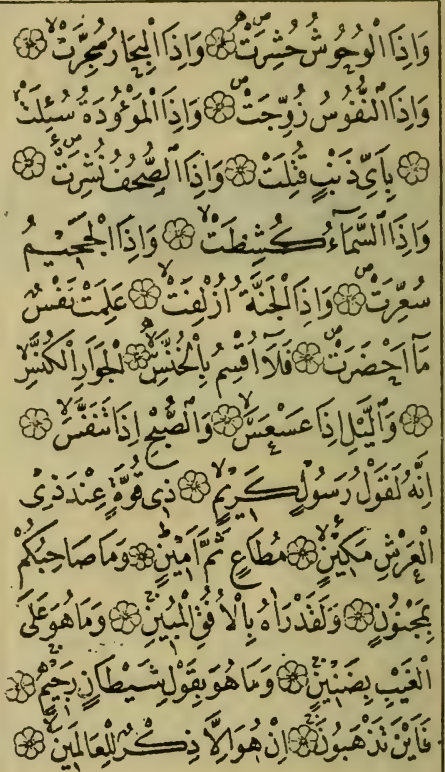 وَاِذَا الْوُحُوشُ حُشِرَتْ ۝ وَاِذَا الْبِحَارُ سُجِّرَتْ ۝
وَاِذَا النُّفُوسُ زُوِّجَتْ ۝ وَاِذَا الْمَوْؤُدَةُ سُئِلَتْ
۝ بِاَىِّ ذَنْبٍ قُتِلَتْ ۝ وَاِذَا الصُّحُفُ نُشِرَتْ ۝
وَاِذَا السَّمَاءُ كُشِطَتْ ۝ وَاِذَا الْجَحٖيمُ
سُعِّرَتْ ۝ وَاِذَا الْجَنَّةُ اُزْلِفَتْ ۝ عَلِمَتْ نَفْسٌ
مَٓا اَحْضَرَتْ ۝ فَلَٓا اُقْسِمُ بِالْخُنَّسِ ۝ اَلْجَوَارِ الْكُنَّسِ
۝ وَالَّيْلِ اِذَا عَسْعَسَ ۝ وَالصُّبْحِ اِذَا تَنَفَّسَ ۝
اِنَّهُ لَقَوْلُ رَسُولٍ كَرٖيمٍ ۝ ذٖى قُوَّةٍ عِنْدَ ذِى
الْعَرْشِ مَكٖينٍ ۝ مُطَاعٍ ثَمَّ اَمٖينٍ ۝ وَمَا صَاحِبُكُمْ
بِمَجْنُونٍ ۝ وَلَقَدْ رَاٰهُ بِالْاُفُقِ الْمُبٖينِ ۝ وَمَا هُوَ عَلَى
الْغَيْبِ بِضَنٖينٍ ۝ وَمَا هُوَ بِقَوْلِ شَيْطَانٍ رَجٖيمٍ ۝
فَاَيْنَ تَذْهَبُونَ ۝ اِنْ هُوَ اِلَّا ذِكْرٌ لِلْعَالَمٖينَ ۝